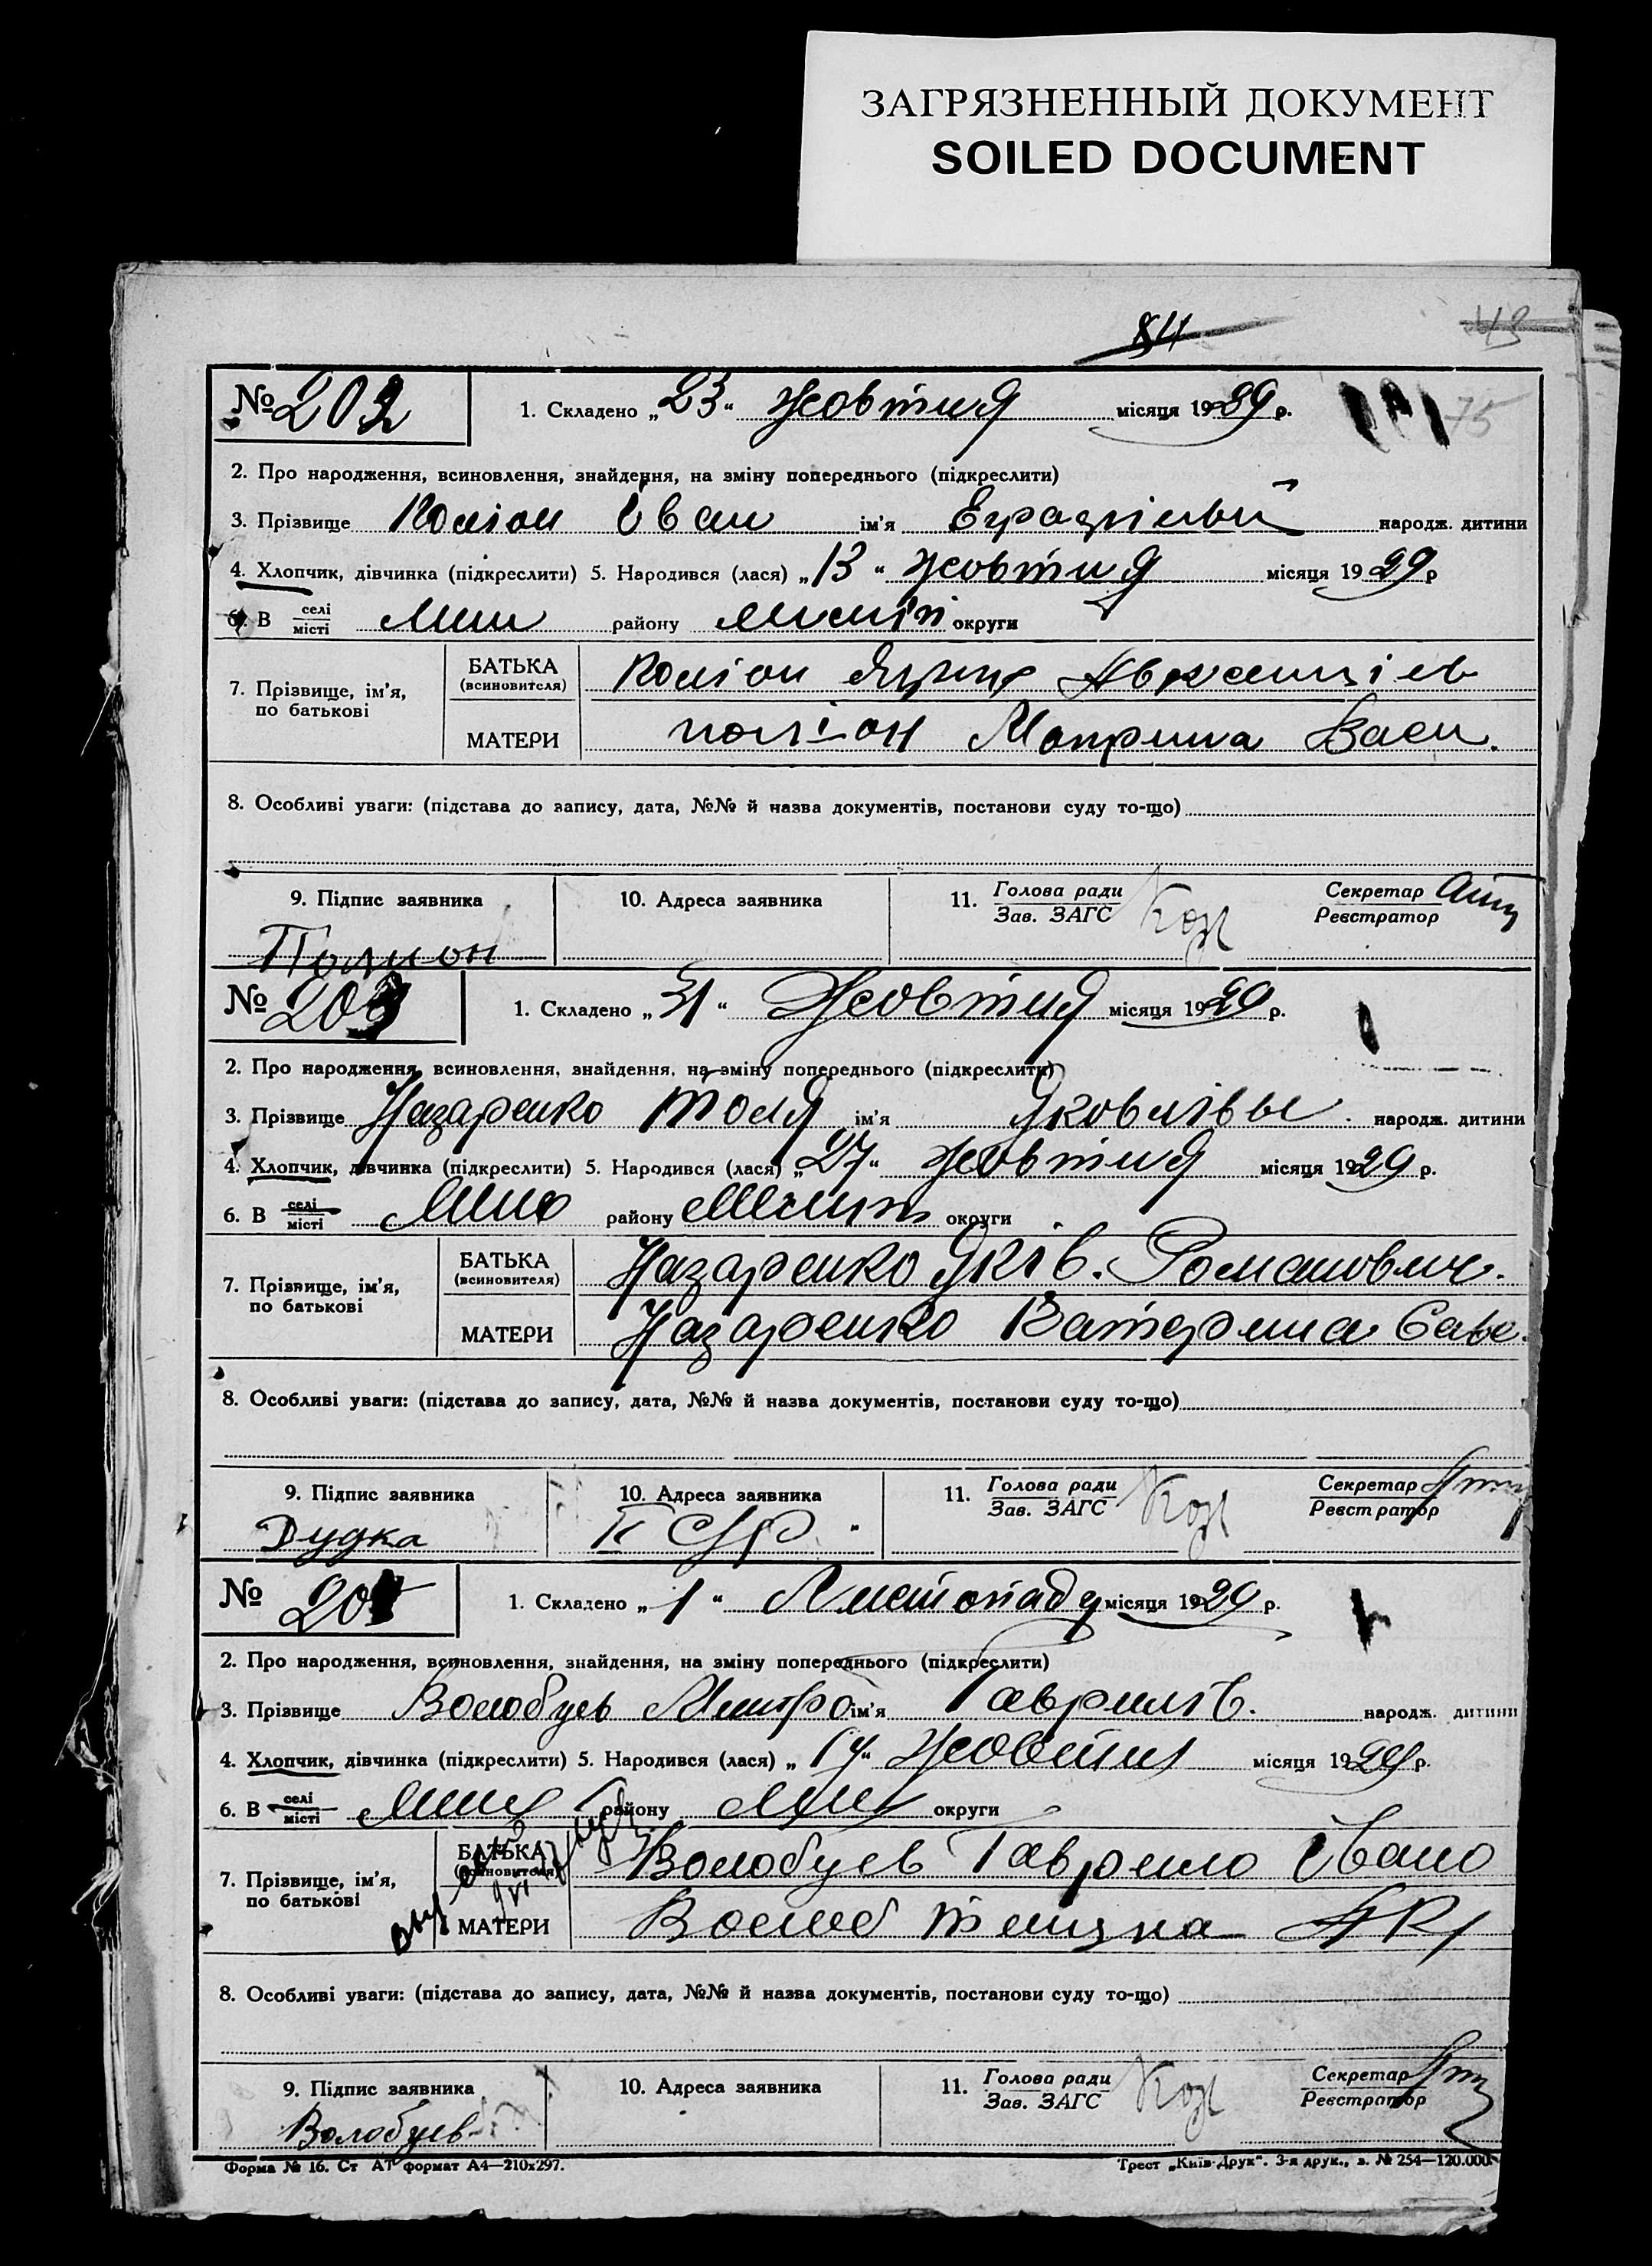 ЗАГРЯЗНЕННЫЙ ДОКУМЕНТ
SOILED DOCUMENT
84
43
№ 202 1. Складено „23“ жовтня місяця 1929 р. 75
2. Про народження, всиновлення, знайдення, на зміну попереднього (підкреслити)
3. Прізвище Поліон Іван ім'я народж. дитини
4. Хлопчик, дівчинка (підкреслити) 5. Народився (лася) „13“ жовтня місяця 1929 р
6. В селі місті району округи
7. Прізвище, ім'я, по батькові
БАТЬКА (всиновителя) Поліон
МАТЕРИ поліон Мотрина Васи.
8. Особливі уваги: (підстава до запису, дата, №№ й назва документів, постанови суду то-що)
9. Підпис заявника 10. Адреса заявника 11. Голова ради Зав. ЗАГС Секретар Реєстратор
№ 203 1. Складено „31“ Жовтня місяця 1929 р.
2. Про народження, всиновлення, знайдення, на зміну попереднього (підкреслити)
3. Прізвище Назаренко Толя ім'я Яковлівы народж. дитини
4. Хлопчик, дівчинка (підкреслити) 5. Народився (лася) „27“ жовтня місяця 1929 р.
6. В селі місті району округи
7. Прізвище, ім'я, по батькові
БАТЬКА (всиновителя) Назаренко Яків. Романович.
МАТЕРИ Назаренко Катерина Саве.
8. Особливі уваги: (підстава до запису, дата, №№ й назва документів, постанови суду то-що)
9. Підпис заявника 10. Адреса заявника 11. Голова ради Зав. ЗАГС Секретар Реєстратор
Дудка
№ 204 1. Складено „1“ Листопаду місяця 1929 р.
2. Про народження, всиновлення, знайдення, на зміну попереднього (підкреслити)
3. Прізвище Волобуев Дмитро ім'я Гаврилів. народж. дитини
4. Хлопчик, дівчинка (підкреслити) 5. Народився (лася) „17“ Жовтня місяця 1929 р.
6. В селі місті району округи
7. Прізвище, ім'я, по батькові
БАТЬКА (всиновителя) Волобуев Гаврило Івано
МАТЕРИ Волоб
8. Особливі уваги: (підстава до запису, дата, №№ й назва документів, постанови суду то-що)
9. Підпис заявника 10. Адреса заявника 11. Голова ради Зав. ЗАГС Секретар Реєстратор
Волобуев
Форма № 16. Ст АТ формат А4—210х297. Трест „Київ-Друк“. 3-я друк., з. № 254—120.000.